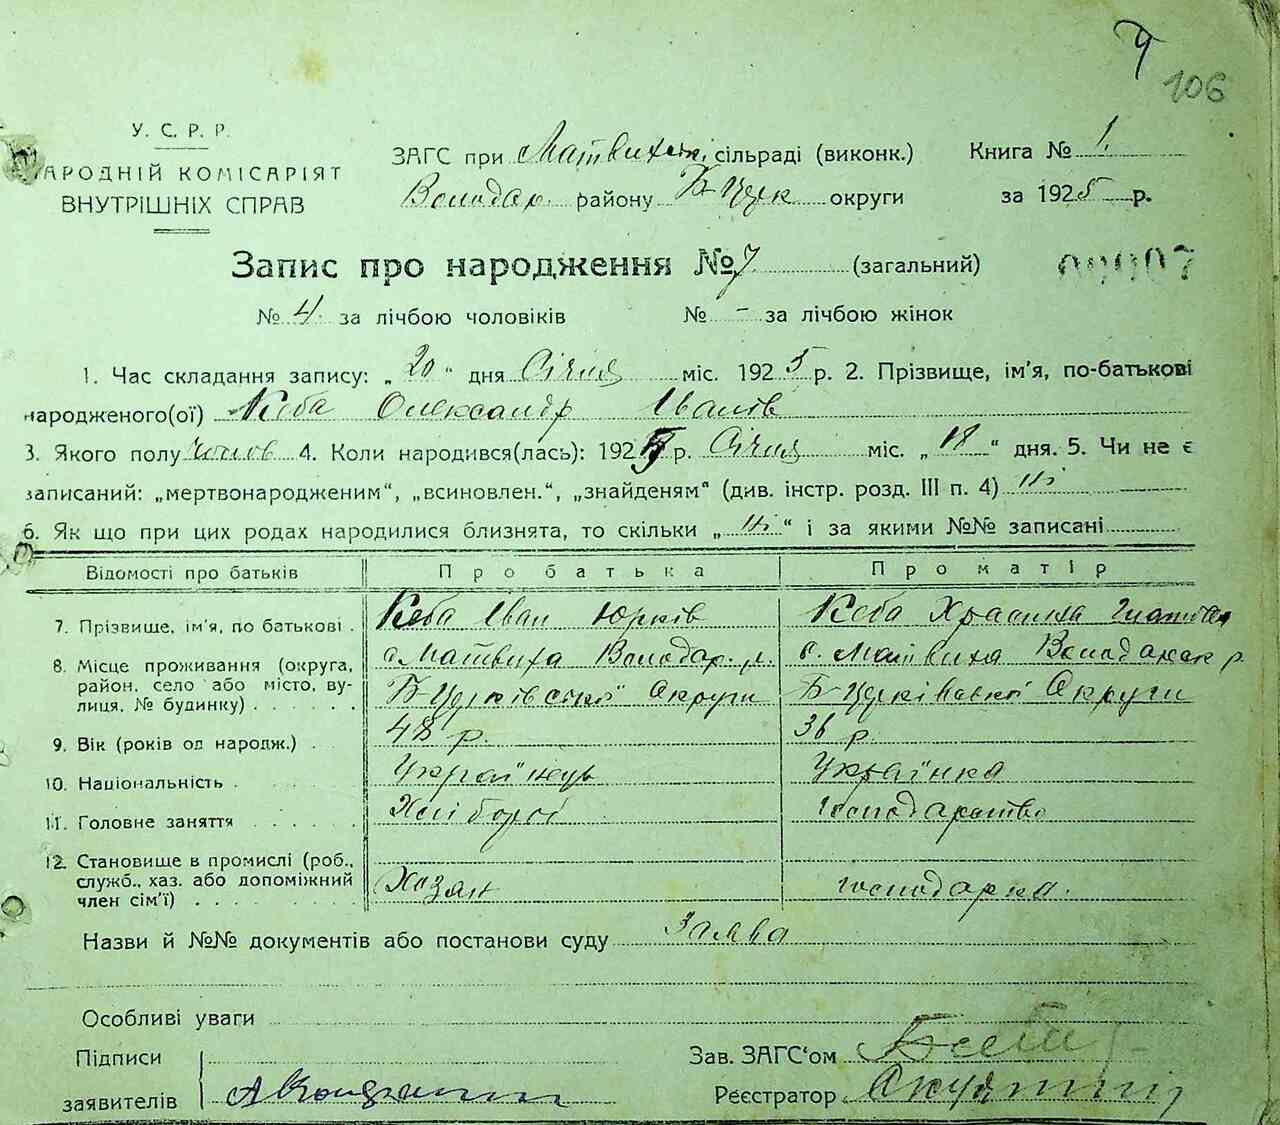 Ч
106
У. С. Р. Р.
НАРОДНІЙ КОМІСАРІЯТ
ВНУТРІШНІХ СПРАВ
ЗАГС при Матвихські сільраді (виконк.) Книга № 1.
Володар. району Б-Церк округи за 1925 р.
Запис про народження № 7 (загальний) 00007
№ 4. за лічбою чоловіків № - за лічбою жінок
1. Час складання запису: „20“ дня Січня міс. 1925 р. 2. Прізвище, ім'я, по-батькові
народженого(ої) Кеба Олександр Іванів
3. Якого полу чолов 4. Коли народився(лась): 1925 р. Січня міс. „18“ дня. 5. Чи не є
записаний: „мертвонародженим“, „всиновлен.“, „знайденям“ (див. інстр. розд. III п. 4) Ні
6. Як що при цих родах народилися близнята, то скільки „Ні“ і за якими №№ записані
Відомості про батьків Про батька Про матір
7. Прізвище, ім'я, по батькові . Кеба Іван Юрків Кеба
8. Місце проживання (округа, район, село або місто, вулиця, № будинку) . . . . . .
с. Матвиха Володар. р. Б-Церківської Округи
с. Матвиха р. Б-Церківської Округи
9. Вік (років од народж.) . 48 р. 36 р.
10. Національність . Українець Українка
11. Головне заняття . . . . . Хлібороб Господарство
12. Становище в промислі (роб., служб., хаз. або допоміжний член сім'ї) . . . . . . . . Хазяїн господарка.
Назви й №№ документів або постанови суду Заява
Особливі уваги
Підписи
заявителів
Зав. ЗАГС‘ом Кеба
Реєстратор